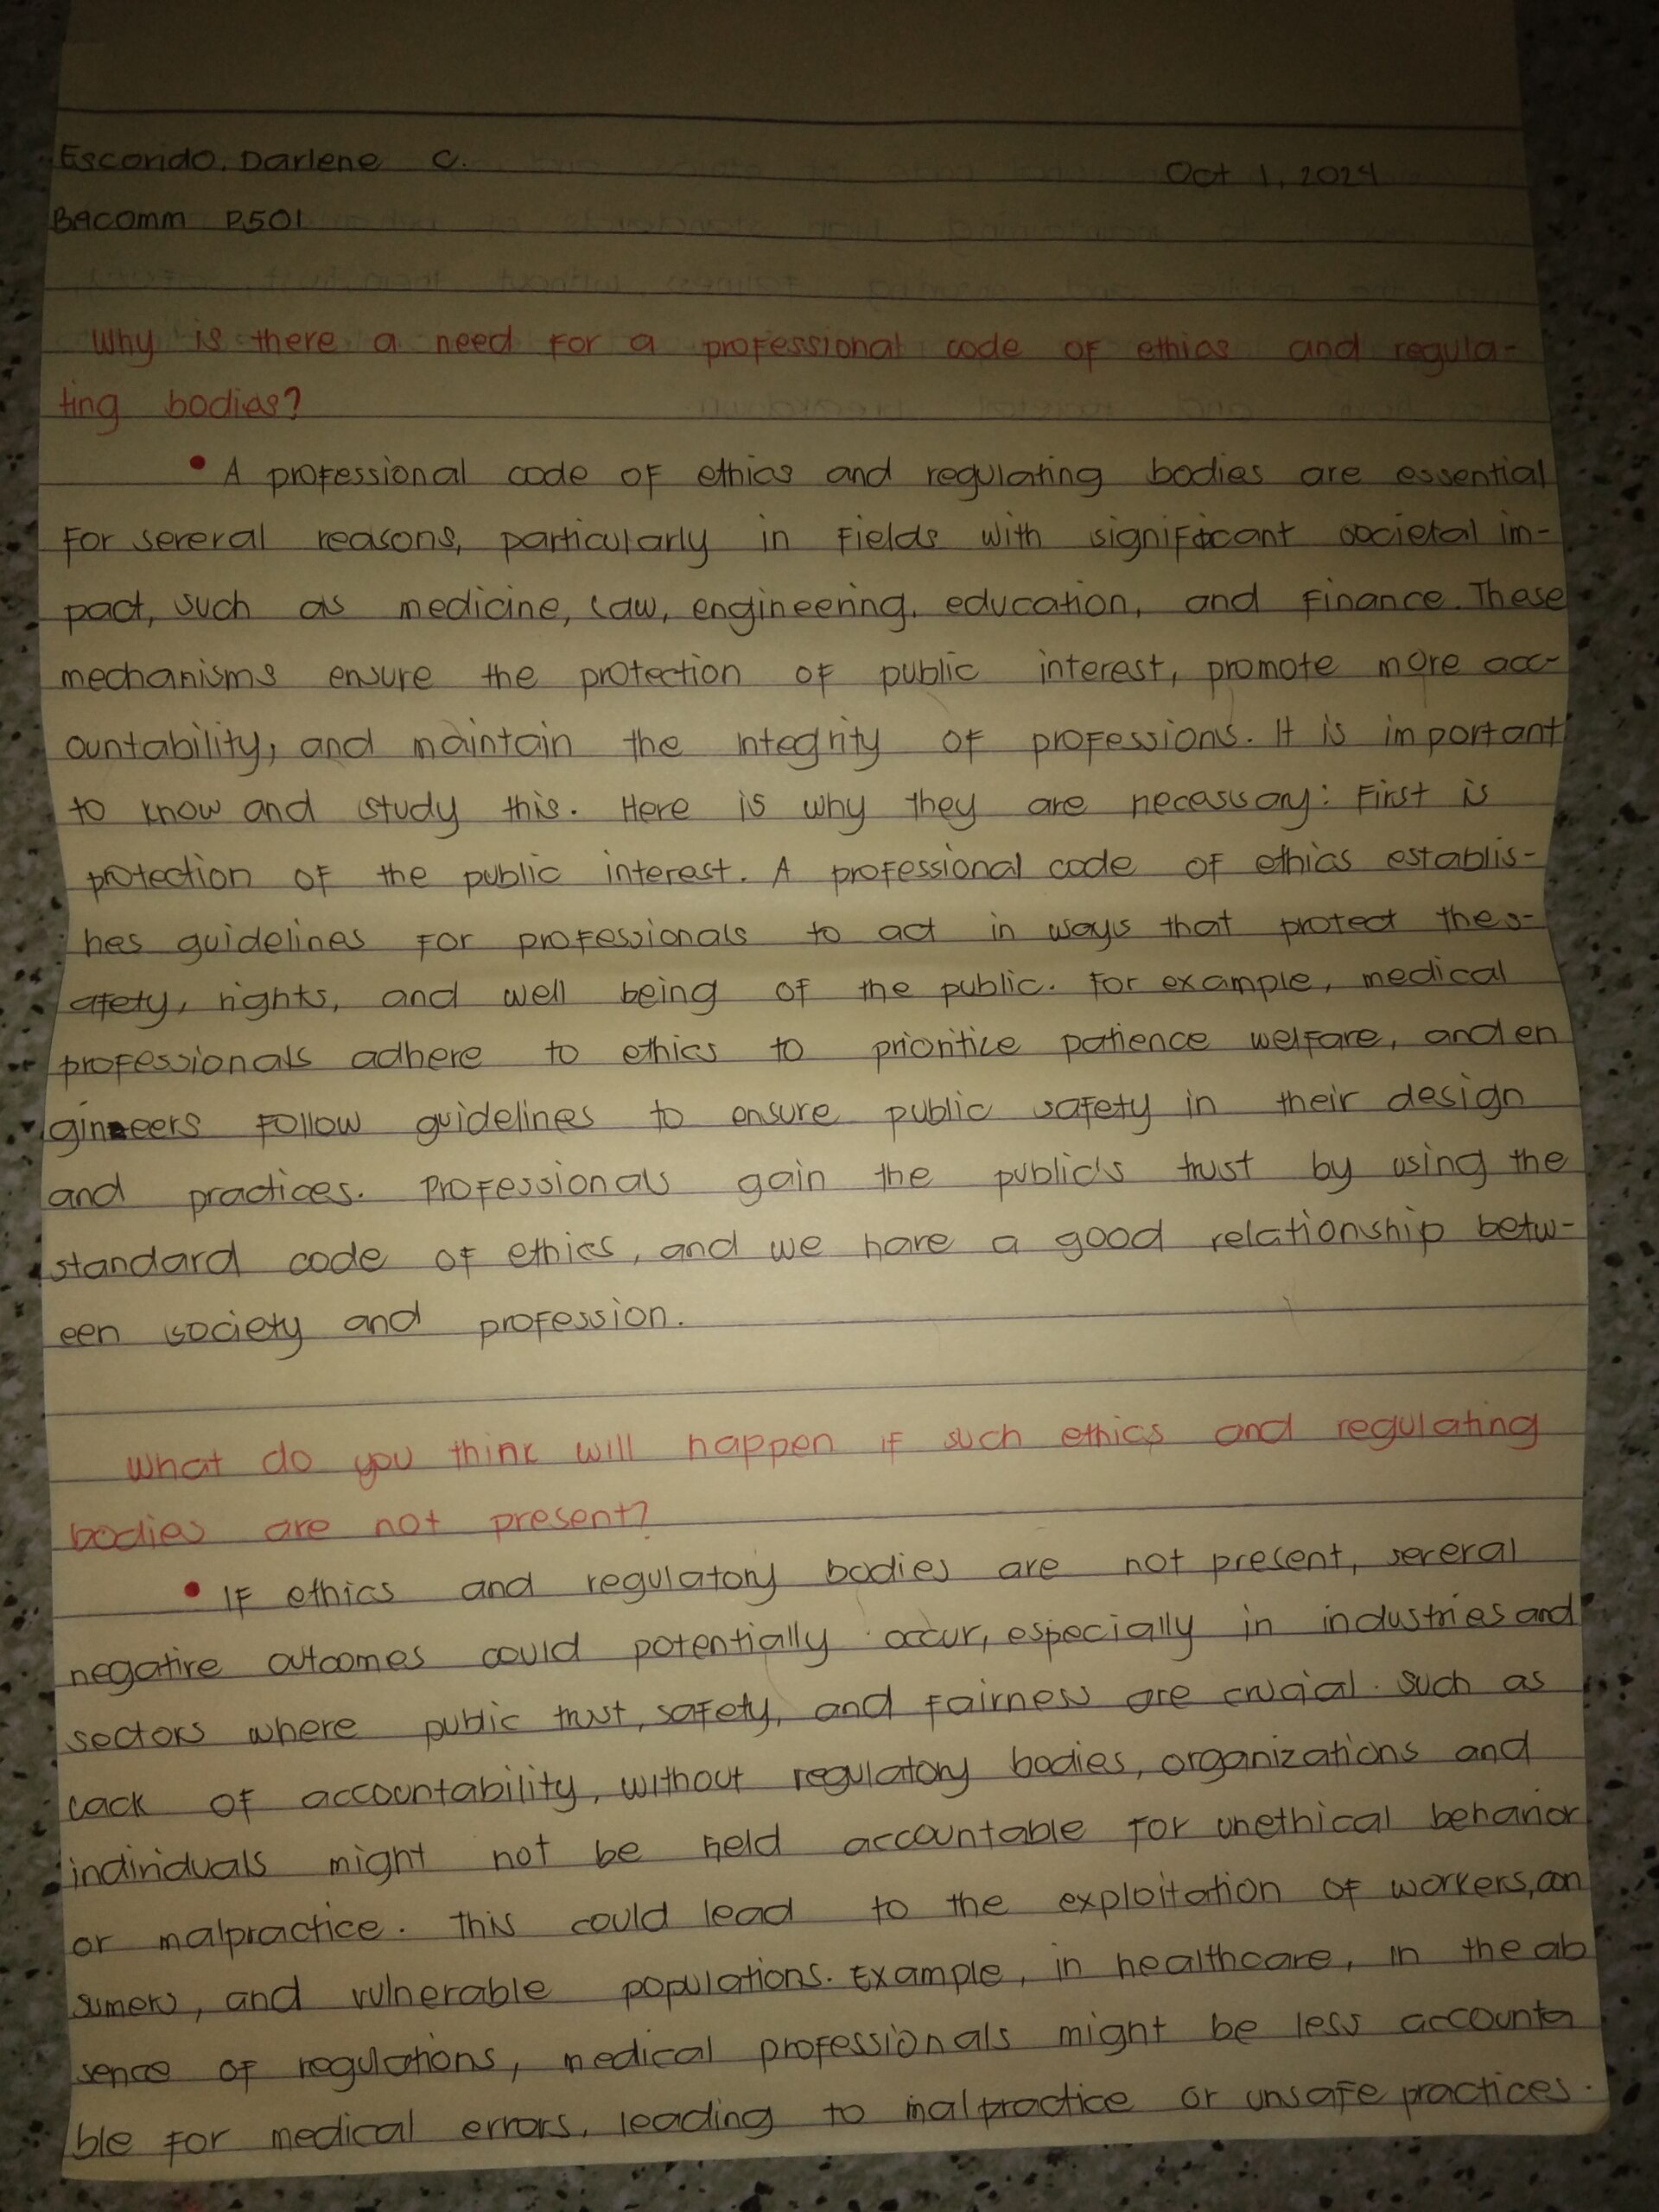 Escorido, Darlene C. Oct 1, 2024
BAcomm P501
Why is there a need for a professional code of ethics and regula-
ting bodies?
• A professional code of ethics and regulating bodies are essential
for several reasons, particularly in fields with significant societal im-
pact, such as medicine, law, engineering, education, and finance. These
mechanisms ensure the protection of public interest, promote more acc-
ountability, and maintain the integrity of professions. It is important
to know and study this. Here is why they are necessary: First is
protection of the public interest. A professional code of ethics establis-
hes guidelines for professionals to act in ways that protect the s-
afety, rights, and well being of the public. For example, medical
professionals adhere to ethics to prioritice patience welfare, and en
gineers follow guidelines to ensure public safety in their design
and practices. Professionals gain the public's trust by using the
standard code of ethics, and we have a good relationship betw-
een society and profession.
What do you think will happen if such ethics and regulating
bodies are not present?
• If ethics and regulatory bodies are not present, several
negative outcomes could potentially occur, especially in industries and
sectors where public trust, safety, and fairness are crucial. Such as
lack of accountability, without regulatory bodies, organizations and
individuals might not be held accountable for unethical behavior
or malpractice. This could lead to the exploitation of workers, con
sumers, and vulnerable populations. Example, in healthcare, in the ab
sence of regulations, medical professionals might be less accounta
ble for medical errors, leading to malpractice or unsafe practices.